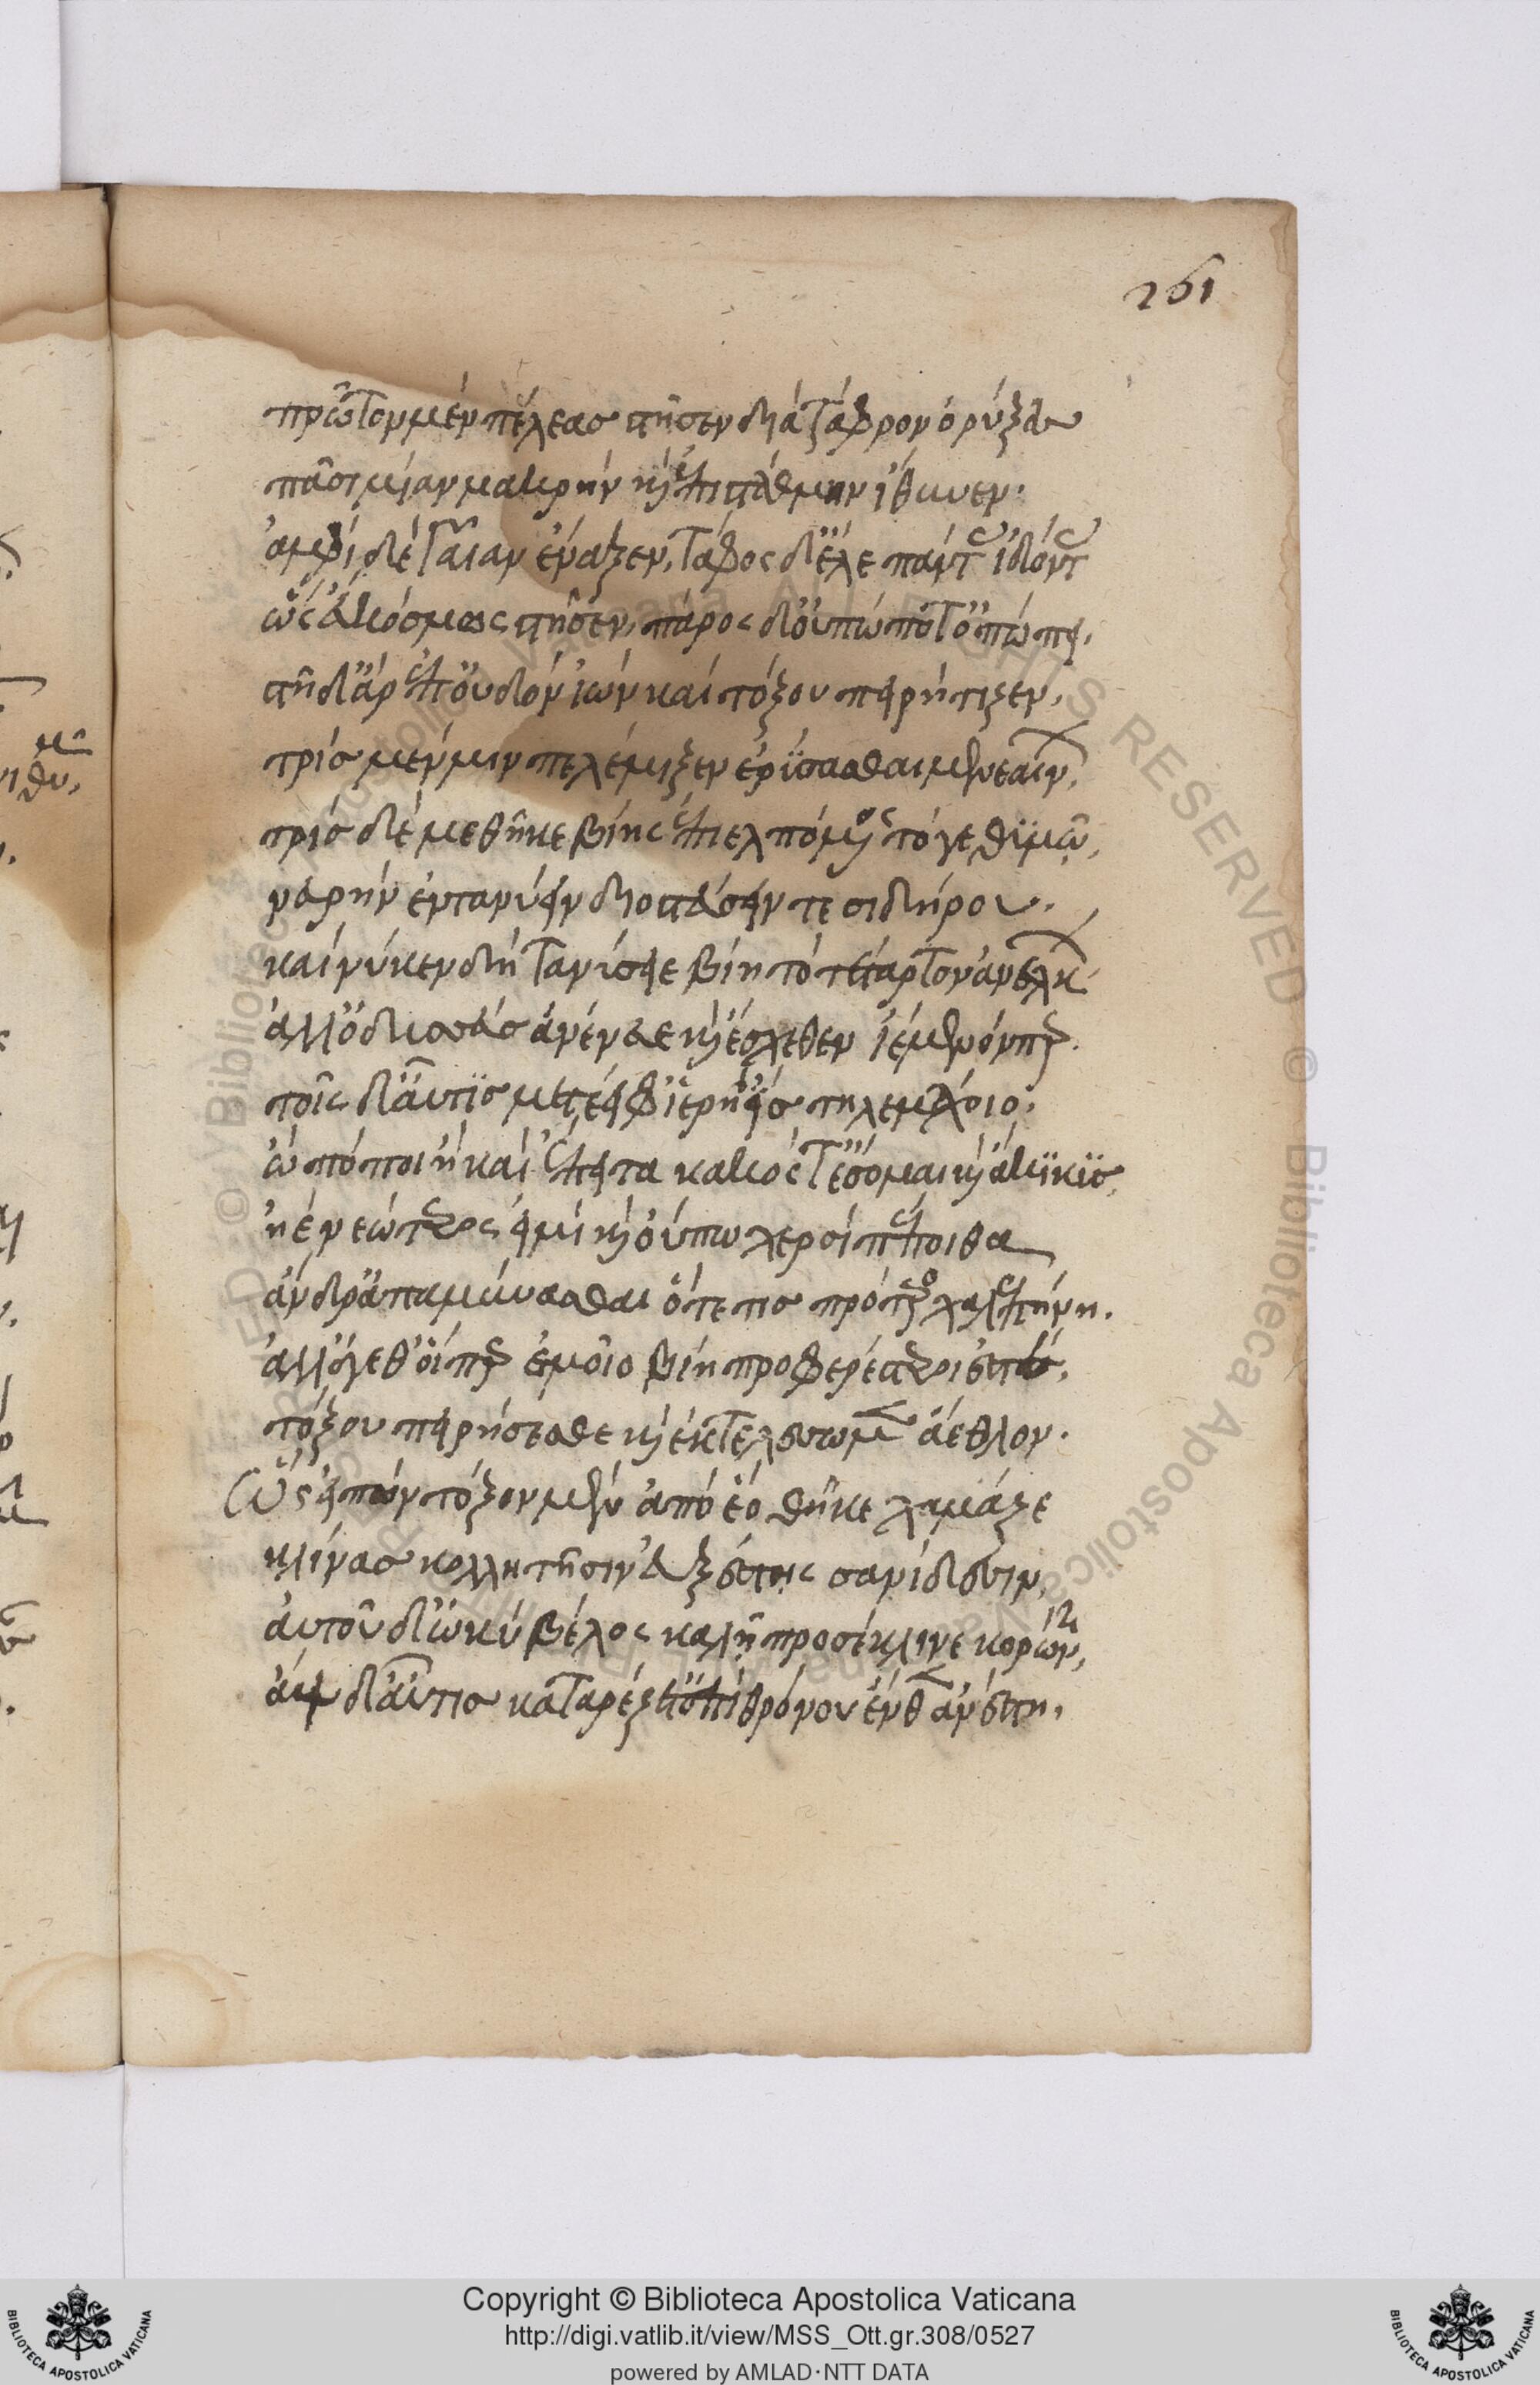 261
πρῶτον μὲν πέλεκας στῆσεν διὰ τάφρον ὀρύξας
πᾶσι μίαν μακρὴν κỳ ἐπὶ στάθμην ἴθυνεν·
ἀμφὶ δὲ γαῖαν ἔναξεν, τάφος δ' ἕλε πάντας ἰδόντας
ὡς εὐκόσμως στῆσεν, πάρος δ' οὐπώποτ' ὀπώπει,
στῆ δ' ἄρ ἐπ' οὐδὸν ἰὼν καὶ τόξου πειρήτιζεν,
τρὶς μέν μιν πελέμιξεν ἐρύσσασθαι μενεαίνων,
τρὶς δὲ μεθῆκε βίης ἐπιελπόμενος τόγε θυμῷ,
νευρὴν ἐντανύειν διοϊστεύσειν τε σιδήρου.
καί νύ κεν δή τανύσειε βίῃ τὸ τέταρτον ἀνέλκων
ἀλλ' ὀδυσεὺς ἀνένευε κỳ ἔσχεθεν ἱέμενόν περ.
τοῖς δ' αὖτις μετέειφ' ἱερὴ ἲς τηλεμάχοιο·
ὢ πόποι ἢ καὶ ἔπειτα κακός τ' ἔσομαι κỳ ἄκικυς,
ἠὲ νεώτερός εἰμι κỳ οὔπω χερσὶ πέποιθα
ἄνδρ' ἀπαμύνασθαι ὅτε τις πρότερος χαλεπήνῃ.
ἀλλ' ἄγεθ' οἵπερ ἐμοῖο βίῃ προφερέστεροί ἐστε,
τόξου πειρήσασθε κỳ ἐκτελέσωμεν ἄεθλον.
Ὣς εἰπὼν τόξον μὲν ἀπὸ ἕο θῆκε χαμᾶζε
κλίνας κολλητῇσιν ἐυξέστῃς σανίδεσσιν,
αὐτοῦ δ' ὠκὺ βέλος καλῇ προσέκλινε κορώνῃ,
ἂψ δ' αὖτις κατ' αρέζετ' ἐπὶ θρόνου ἔνθεν ἀνέστη,
Copyright © Biblioteca Apostolica Vaticana
http://digi.vatlib.it/view/MSS_Ott.gr.308/0527
powered by AMLAD·NTT DATA